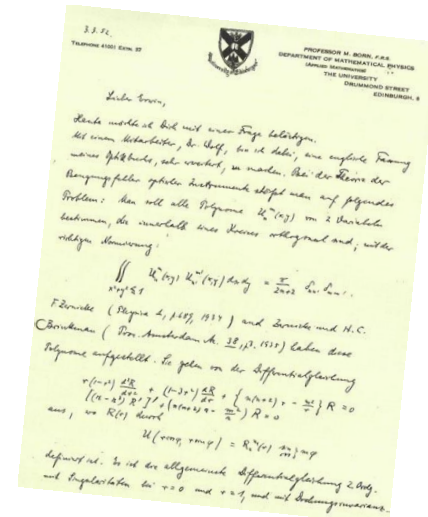 3.3.52.
TELEPHONE 41001 EXTN.
PROFESSOR M. BORN, F.R.S.
DEPARTMENT OF MATHEMATICAL PHYSICS
(APPLIED MATHEMATICS)
THE UNIVERSITY
DRUMMOND STREET
EDINBURGH, 8
Lieber Erwin,
Heute möchte ich Dich mit einer Frage belästigen.
Mit einem Mitarbeiter, Dr. Wolf, bin ich dabei, eine englische Fassung
meines Optikbuchs, sehr erweitert, zu machen. Bei der Theorie der
Beugungsfehler optischer Instrumente stösst man auf folgendes
Problem: Man soll alle Polynome Uₙᵐ(x,y) von 2 Variabeln
bestimmen, die innerhalb eines Kreises orthogonal sind, mit der
richtigen Normierung:
∬ dx dy = π/(2n+2)
x²+y²≤1
F. Zernicke ( 1934) und Zernicke und H.C.
Brinkman ( Proc. Amsterdam 38, 1935) haben diese
Polynome aufgestellt. Sie gehen von der Differentialgleichung
r(1-r²) d²R/dr² + (1-3r²) dR/dr + { n(n+2) r - m²/r } R = 0
aus, wo R(r) durch
U(r cos φ, r sin φ) = Rₙᵐ(r) mφ
definiert ist. Es ist die allgemeinste Differentialgleichung 2. Ordg.
mit Singularitäten bei r = 0 und r = 1, und mit Drehungsinvarianz.